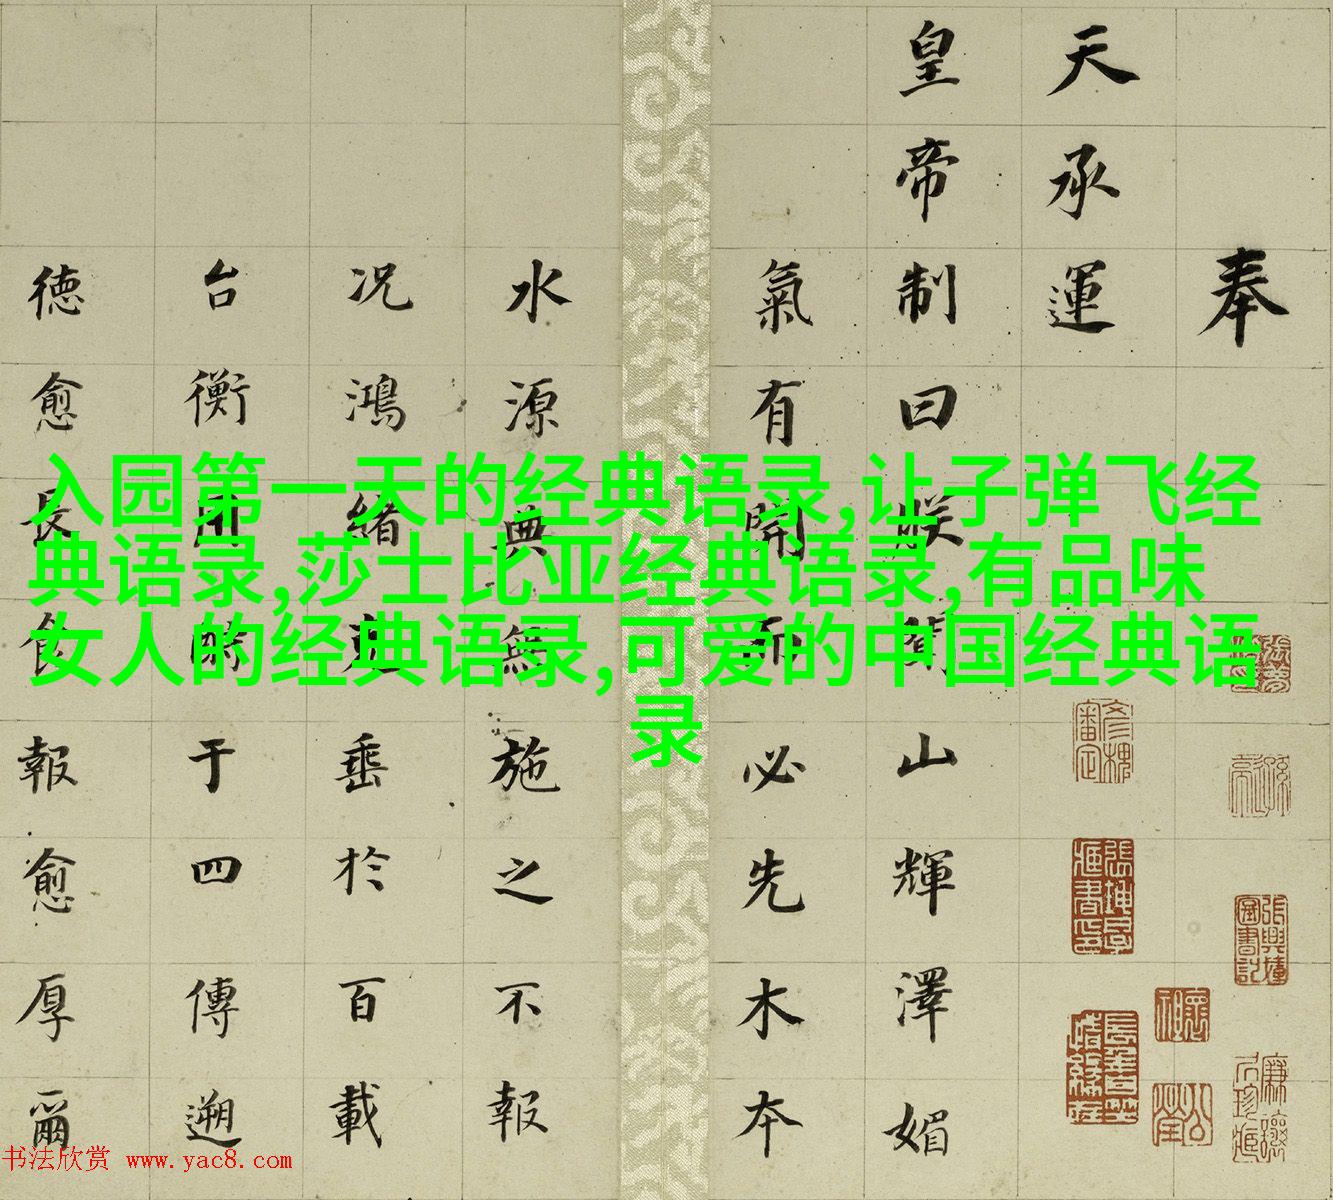 奉
天承運
皇帝制曰朕聞山輝澤媚
氣有開而必先木本
水源典無施之不報
况鴻緒丕垂於百載
台衡於四傳遡
德愈長食報愈厚爾
入园第一天的经典语录,让子弹飞经
典语录,莎士比亚经典语录,有品味
女人的经典语录,可爱的中国经典语
录
书法欣赏 www.yac8.com